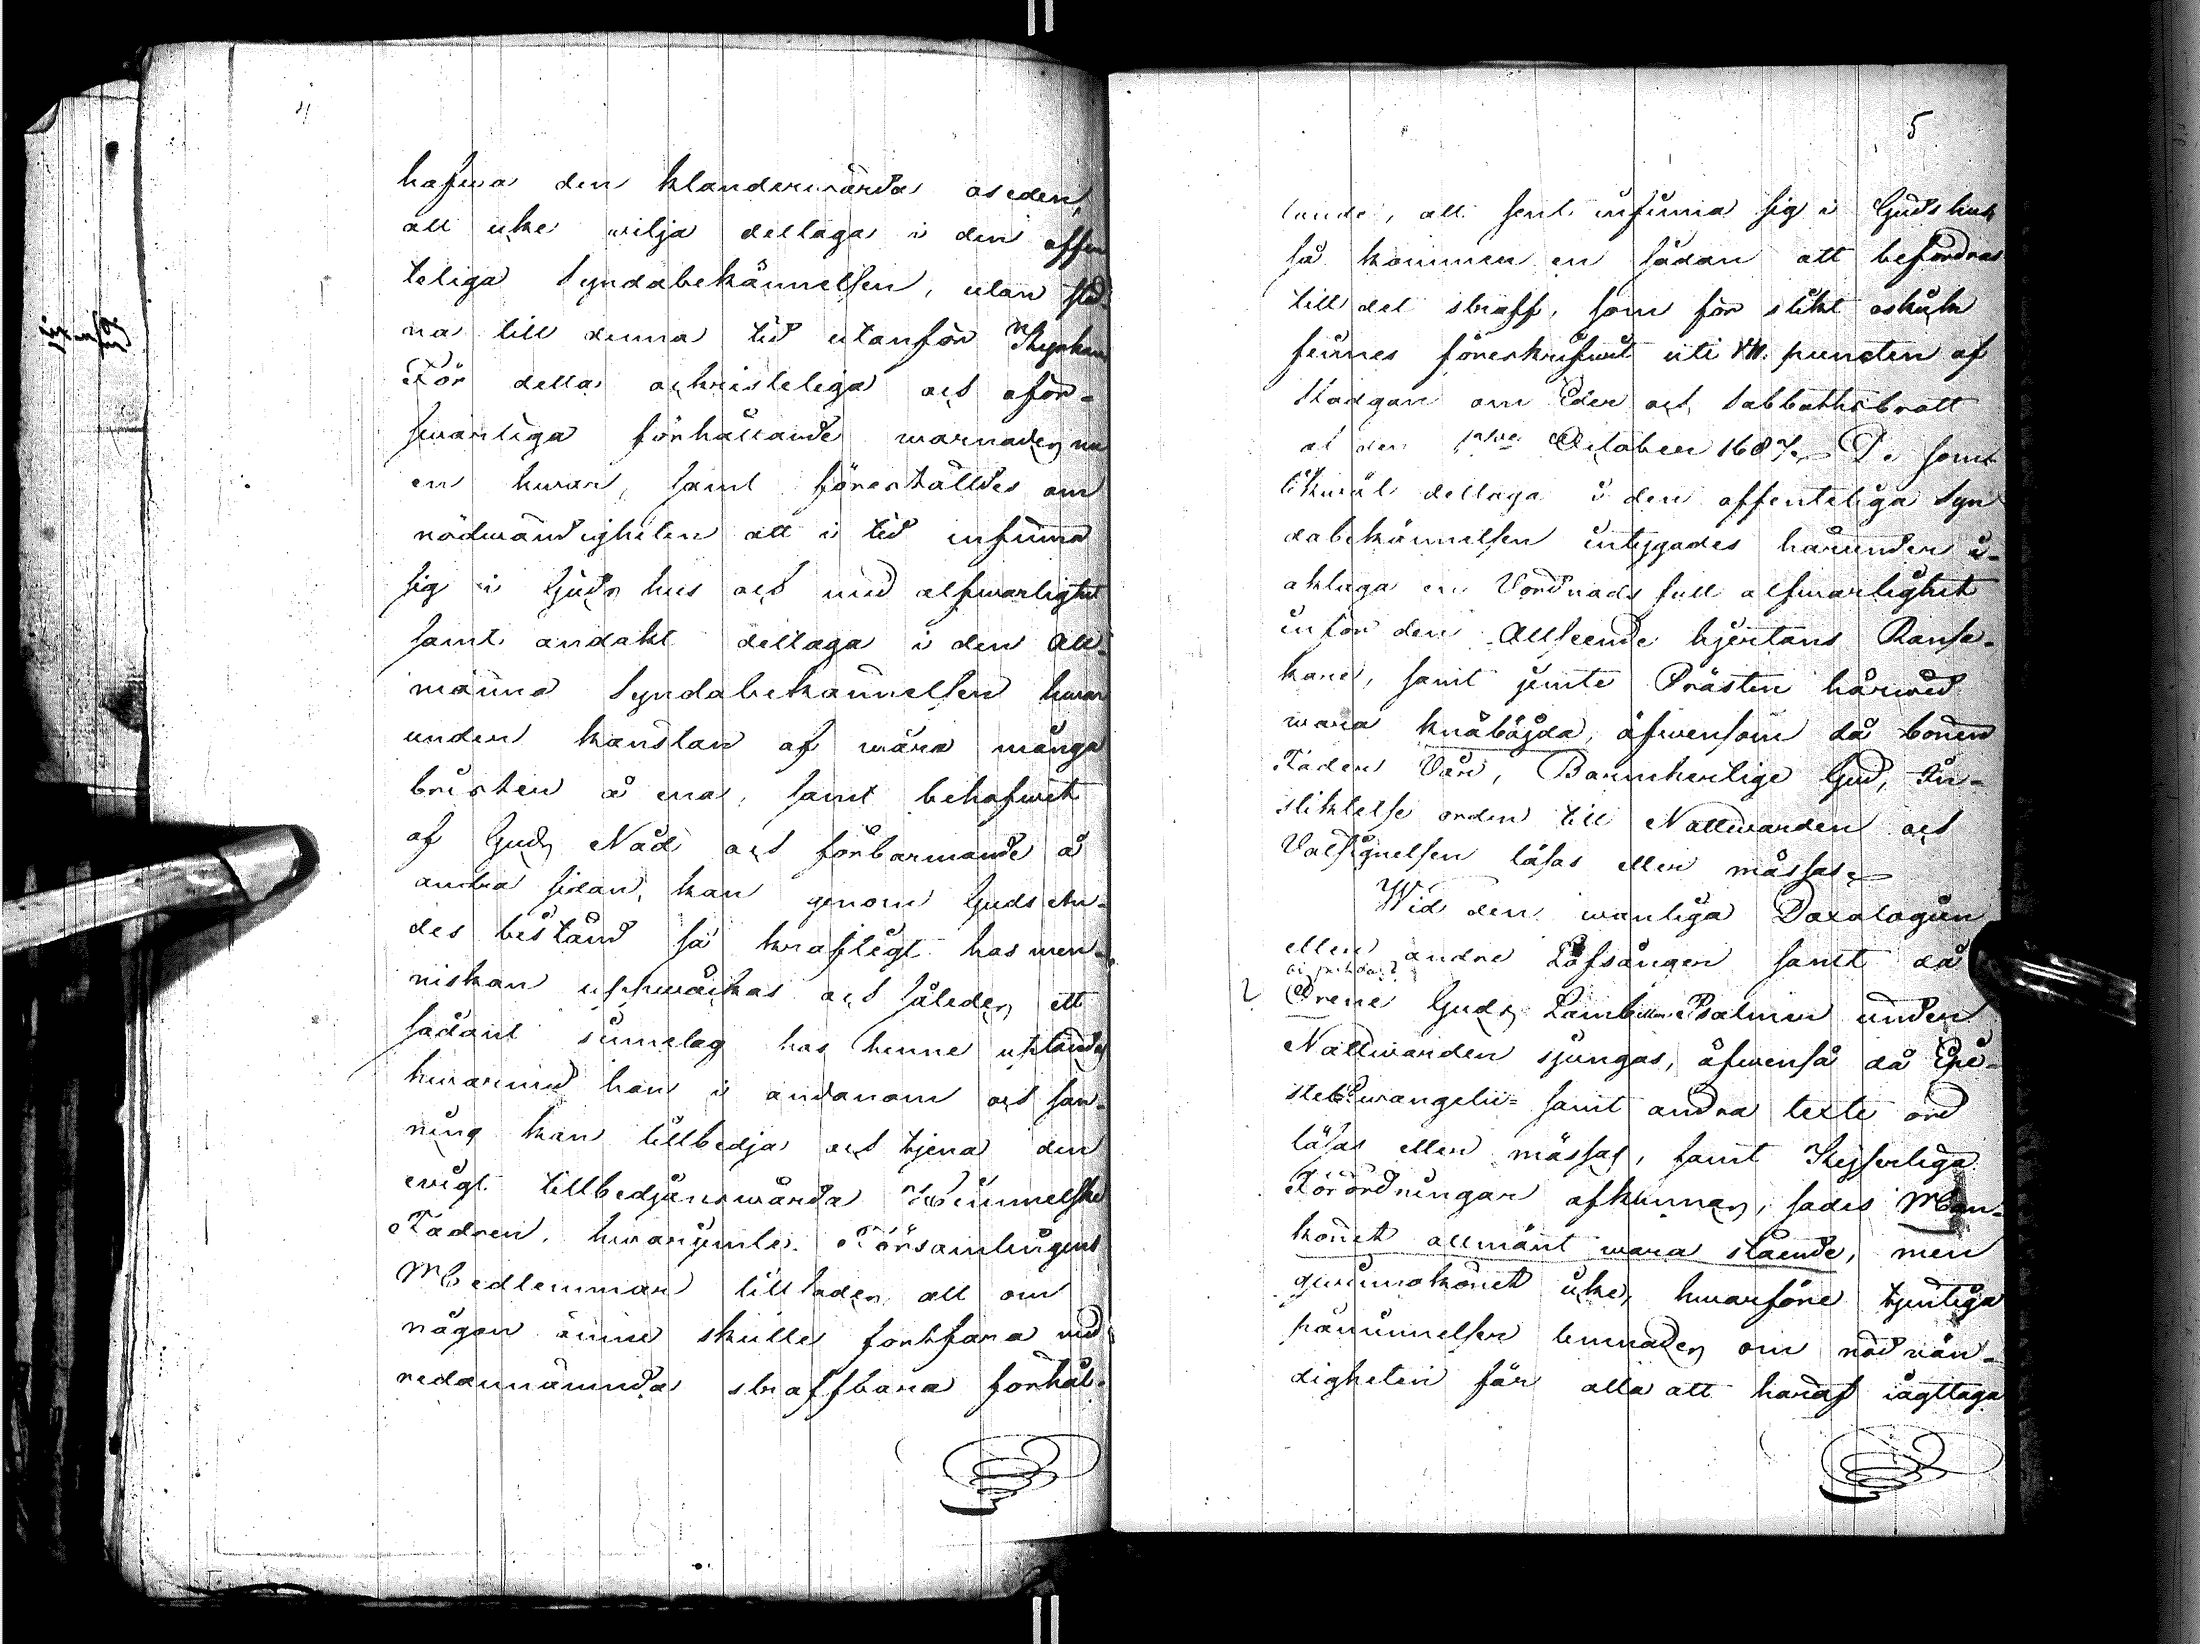 4
hafwa den klanderwärda oseden,
att icke wilja deltaga i den offen
teliga Syndabekännelsen, utan stad
na till denna tid utanför Kyrkan
För detta ochristeliga och oför-
swarliga förhållande warnades nu
en hwar, samt föreställdes om
nödwändigheten att i tid infinna
sig i Guds hus och med alfwarlighet
samt andakt deltaga i den All-
männa Syndabekännelsen hwar
under känslan af wåra många
brister å ena, samt behofwet
af Guds Nåd och förbarmande å
andra sidan, kan genom Guds An-
des bistånd så kraftigt hos men-
niskan uppwäckas och således ett
sådant sinnelag hos henne uptändas
hwarmed hon i andanom och san-
ning kan tillbedja och tjena den
evigt tillbedjanswärda Himmelske
Fadren, hwarjemte Församlingens
Medlemmar tillsades att om
någon ännu skulle fortfara med
redannämnda straffbara förhål-
5
lande, att sent infinna sig i Guds hus
så kommer en sådan att befordras
till det straff, som för slikt oskick
finnes föreskrifwet uti VIII. puncten af
Stadgan om Eder och Sabbathsbrott
af den October 1687. De som
likwäl deltaga i den offenteliga Syn
dabekännelsen intygades härunder i-
akttaga en Vördnads full alfwarlighet
inför den Allseende hjertans Ransa-
kare, samt jemte Prästen härwid
wara knäböjda, äfwensom då bönen
Fader Vår, Barmhertige Gud, In-
stiktelse orden till Nattwarden och
Välsignelsen läsas eller mässas.
Wid den wanliga Doxologin
eller andre Låfsången samt då
? O rene Guds Lamb eller Psalmer under
Nattwarden sjungas, äfwenså då Epi-
stel Ewangelii= samt andra texte ord
läsas eller mässas, samt Kejserliga
Förordningar afkunnas, sades Man-
könet allmänt wara stående, men
qwinnokönet icke, hwarföre tjenliga
påminnelser lemnades om nödwän-
digheten för alla att häraf iagttaga